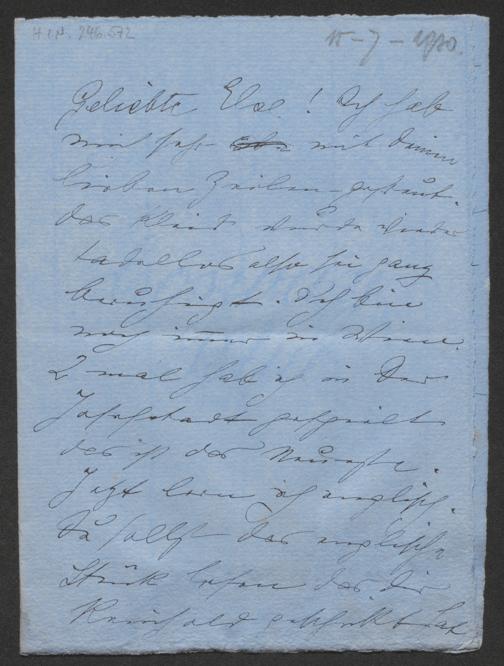 H.I.N. 246.572
15-7-1930.
Geliebte Else! Ich hab
mich sehr mit deinen
lieben Zeilen gefreut.
das Kleid wurde wieder
tadellos also sei ganz
beruhigt. Ich bin
noch immer in Wien.
2 mal hab ich in der
Josefstadt gespielt
das ist das Neueste.
Jetzt lern ich englisch.
Du sollst das englische
Stück lesen das dir
Reinhold geschickt hat